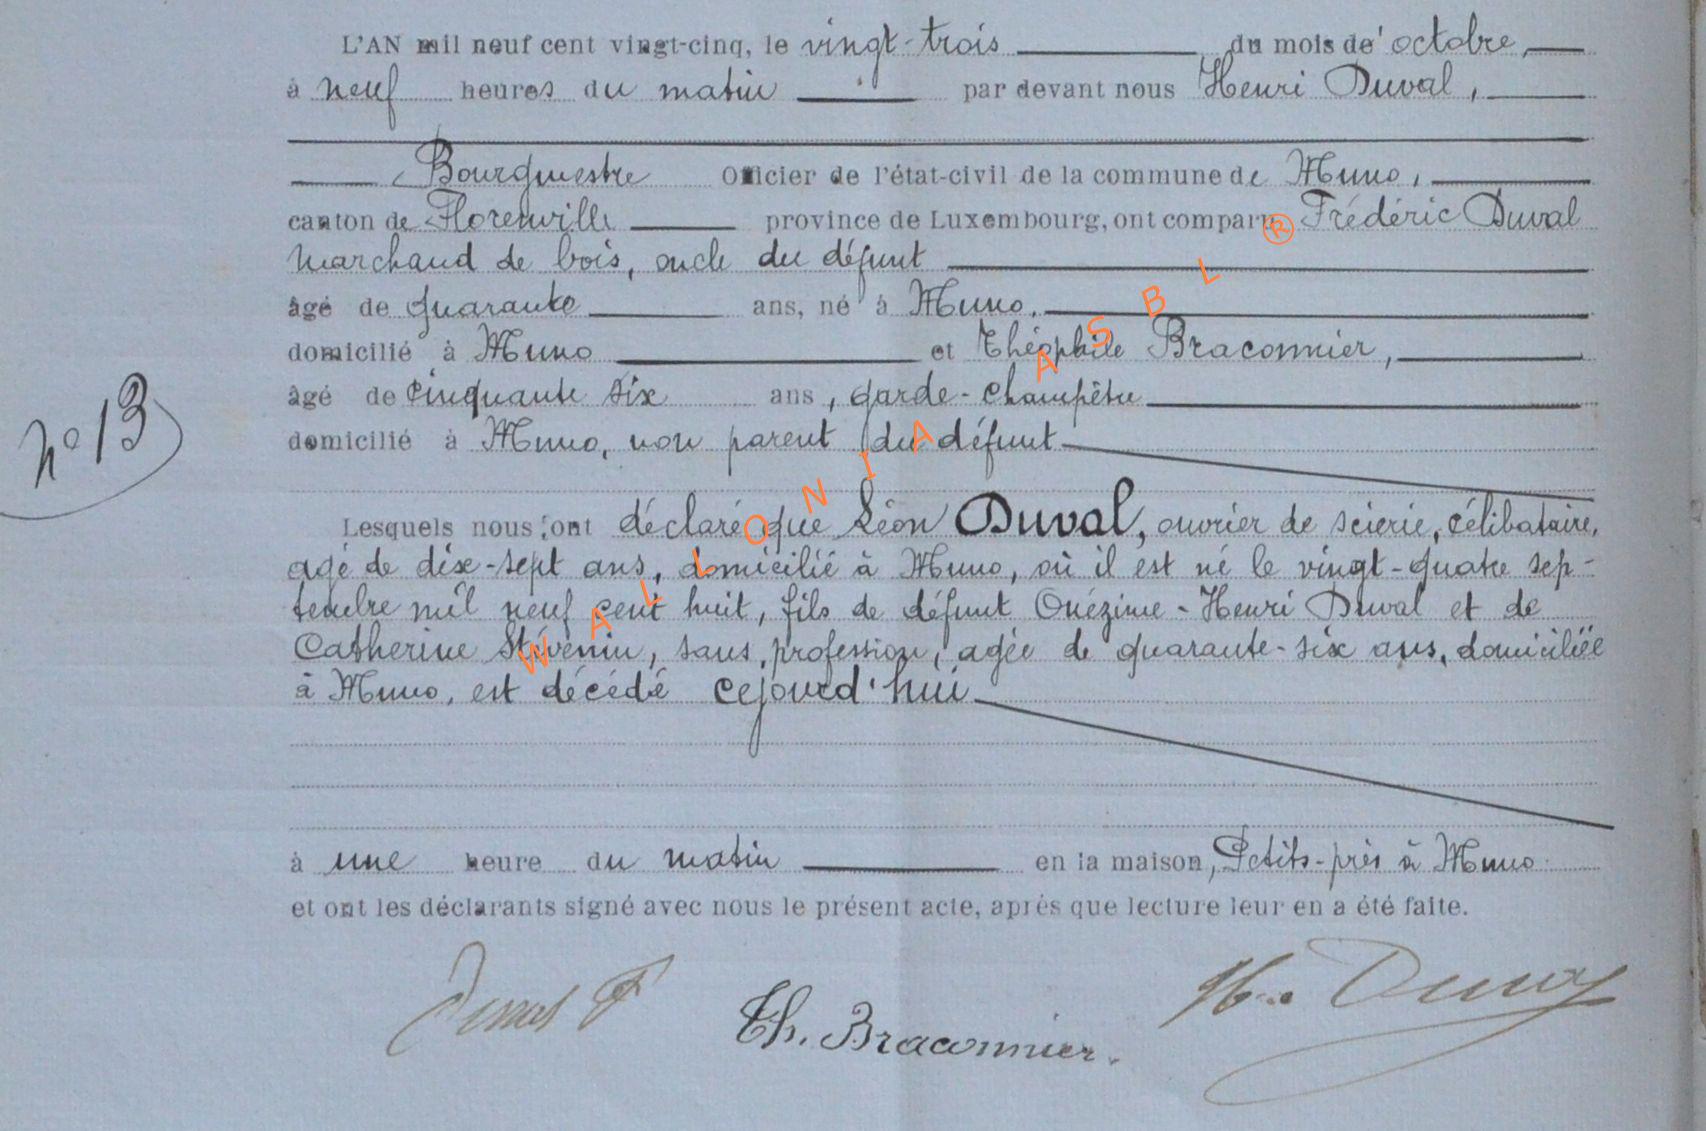 L'AN mil neuf cent vingt-cinq, le vingt-trois du mois de octobre,
à neuf heures du matin par devant nous Henri Duval,
Bourgmestre Officier de l'état-civil de la commune de Muno,
canton de Florenville province de Luxembourg, ont comparu Frédéric Duval
marchand de bois, oncle du défunt
âgé de quarante ans, né à Muno,
domicilié à Muno et Théophile Braconnier,
âgé de cinquante six ans, garde-champêtre
domicilié à Muno, non parent du défunt
n° 13
Lesquels nous ont déclaré que Léon Duval, ouvrier de scierie, célibataire,
agé de dix-sept ans, domicilié à Muno, où il est né le vingt-quatre sep-
tembre mil neuf cent huit, fils de défunt Onézime-Henri Duval et de
Catherine Stévenin, sans profession, agée de quarante-six ans, domiciliée
à Muno, est décédé cejourd'hui
à une heure du matin en la maison, Petits-prés à Muno
et ont les déclarants signé avec nous le présent acte, après que lecture leur en a été faite.
Duval F
Th. Braconnier.
H. Duval
WALLONIA ASBL ®